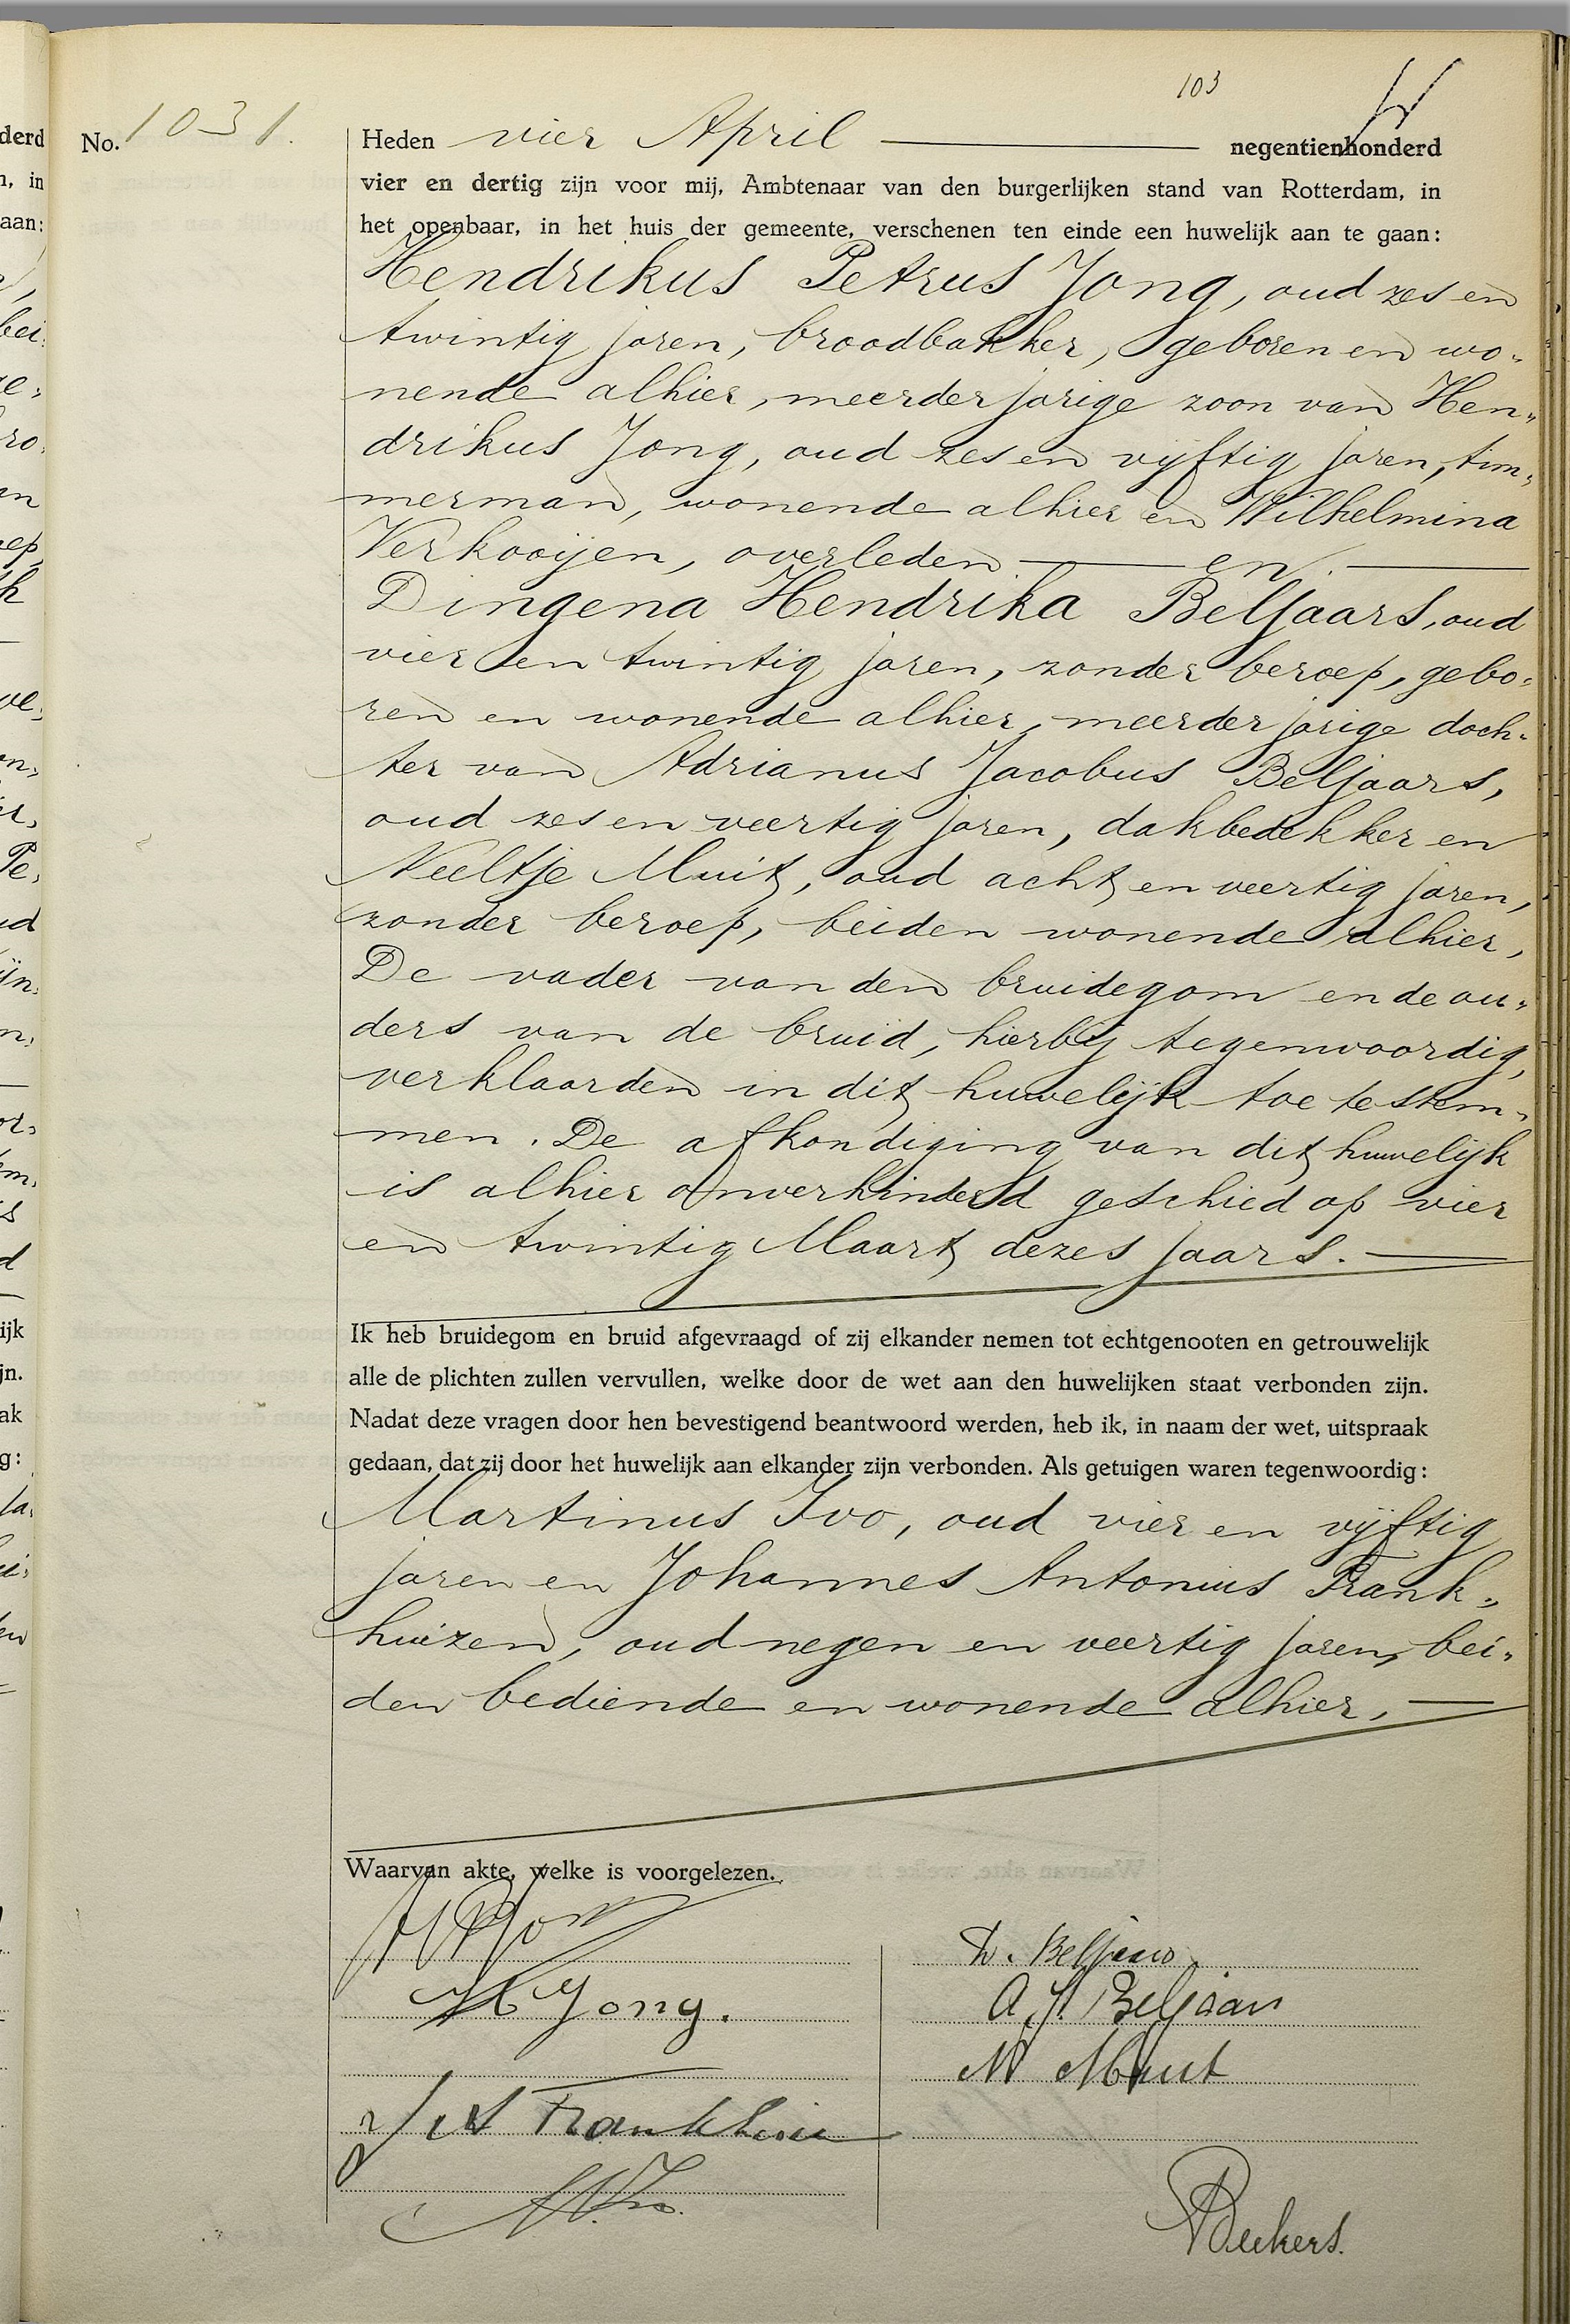 103
No. 1031.
Heden vier April negentienhonderd
vier en dertig zijn voor mij, Ambtenaar van den burgerlijken stand van Rotterdam, in
het openbaar, in het huis der gemeente, verschenen ten einde een huwelijk aan te gaan:
Hendrikus Petrus Jong, oud zes en
twintig jaren, broodbakker, geboren en wo-
nende alhier, meerderjarige zoon van Hen-
drikus Jong, oud zes en vijftig jaren, tim-
merman, wonende alhier en Wilhelmina
Verkooijen, overleden en
Dingena Hendrika Beljaars, oud
vier en twintig jaren, zonder beroep, gebo-
ren en wonende alhier, meerderjarige doch-
ter van Adrianus Jacobus Beljaars,
oud zes en veertig jaren, dakbedekker en
Neeltje Muit, oud acht en veertig jaren,
zonder beroep, beiden wonende alhier,
De vader van den bruidegom en de ou-
ders van de bruid, hierbij tegenwoordig,
verklaarden in dit huwelijk toe te stem-
men. De afkondiging van dit huwelijk
is alhier onverhinderd geschied op vier
en twintig Maart dezes jaars.
Ik heb bruidegom en bruid afgevraagd of zij elkander nemen tot echtgenooten en getrouwelijk
alle de plichten zullen vervullen, welke door de wet aan den huwelijken staat verbonden zijn.
Nadat deze vragen door hen bevestigend beantwoord werden, heb ik, in naam der wet, uitspraak
gedaan, dat zij door het huwelijk aan elkander zijn verbonden. Als getuigen waren tegenwoordig:
Martinus Ivo, oud vier en vijftig
jaren en Johannes Antonius Frank-
huizen, oud negen en veertig jaren, bei-
den bediende en wonende alhier.
Waarvan akte, welke is voorgelezen.
HPJong
D. Beljaars
H Jong.
A.J. Beljaars
N Muit